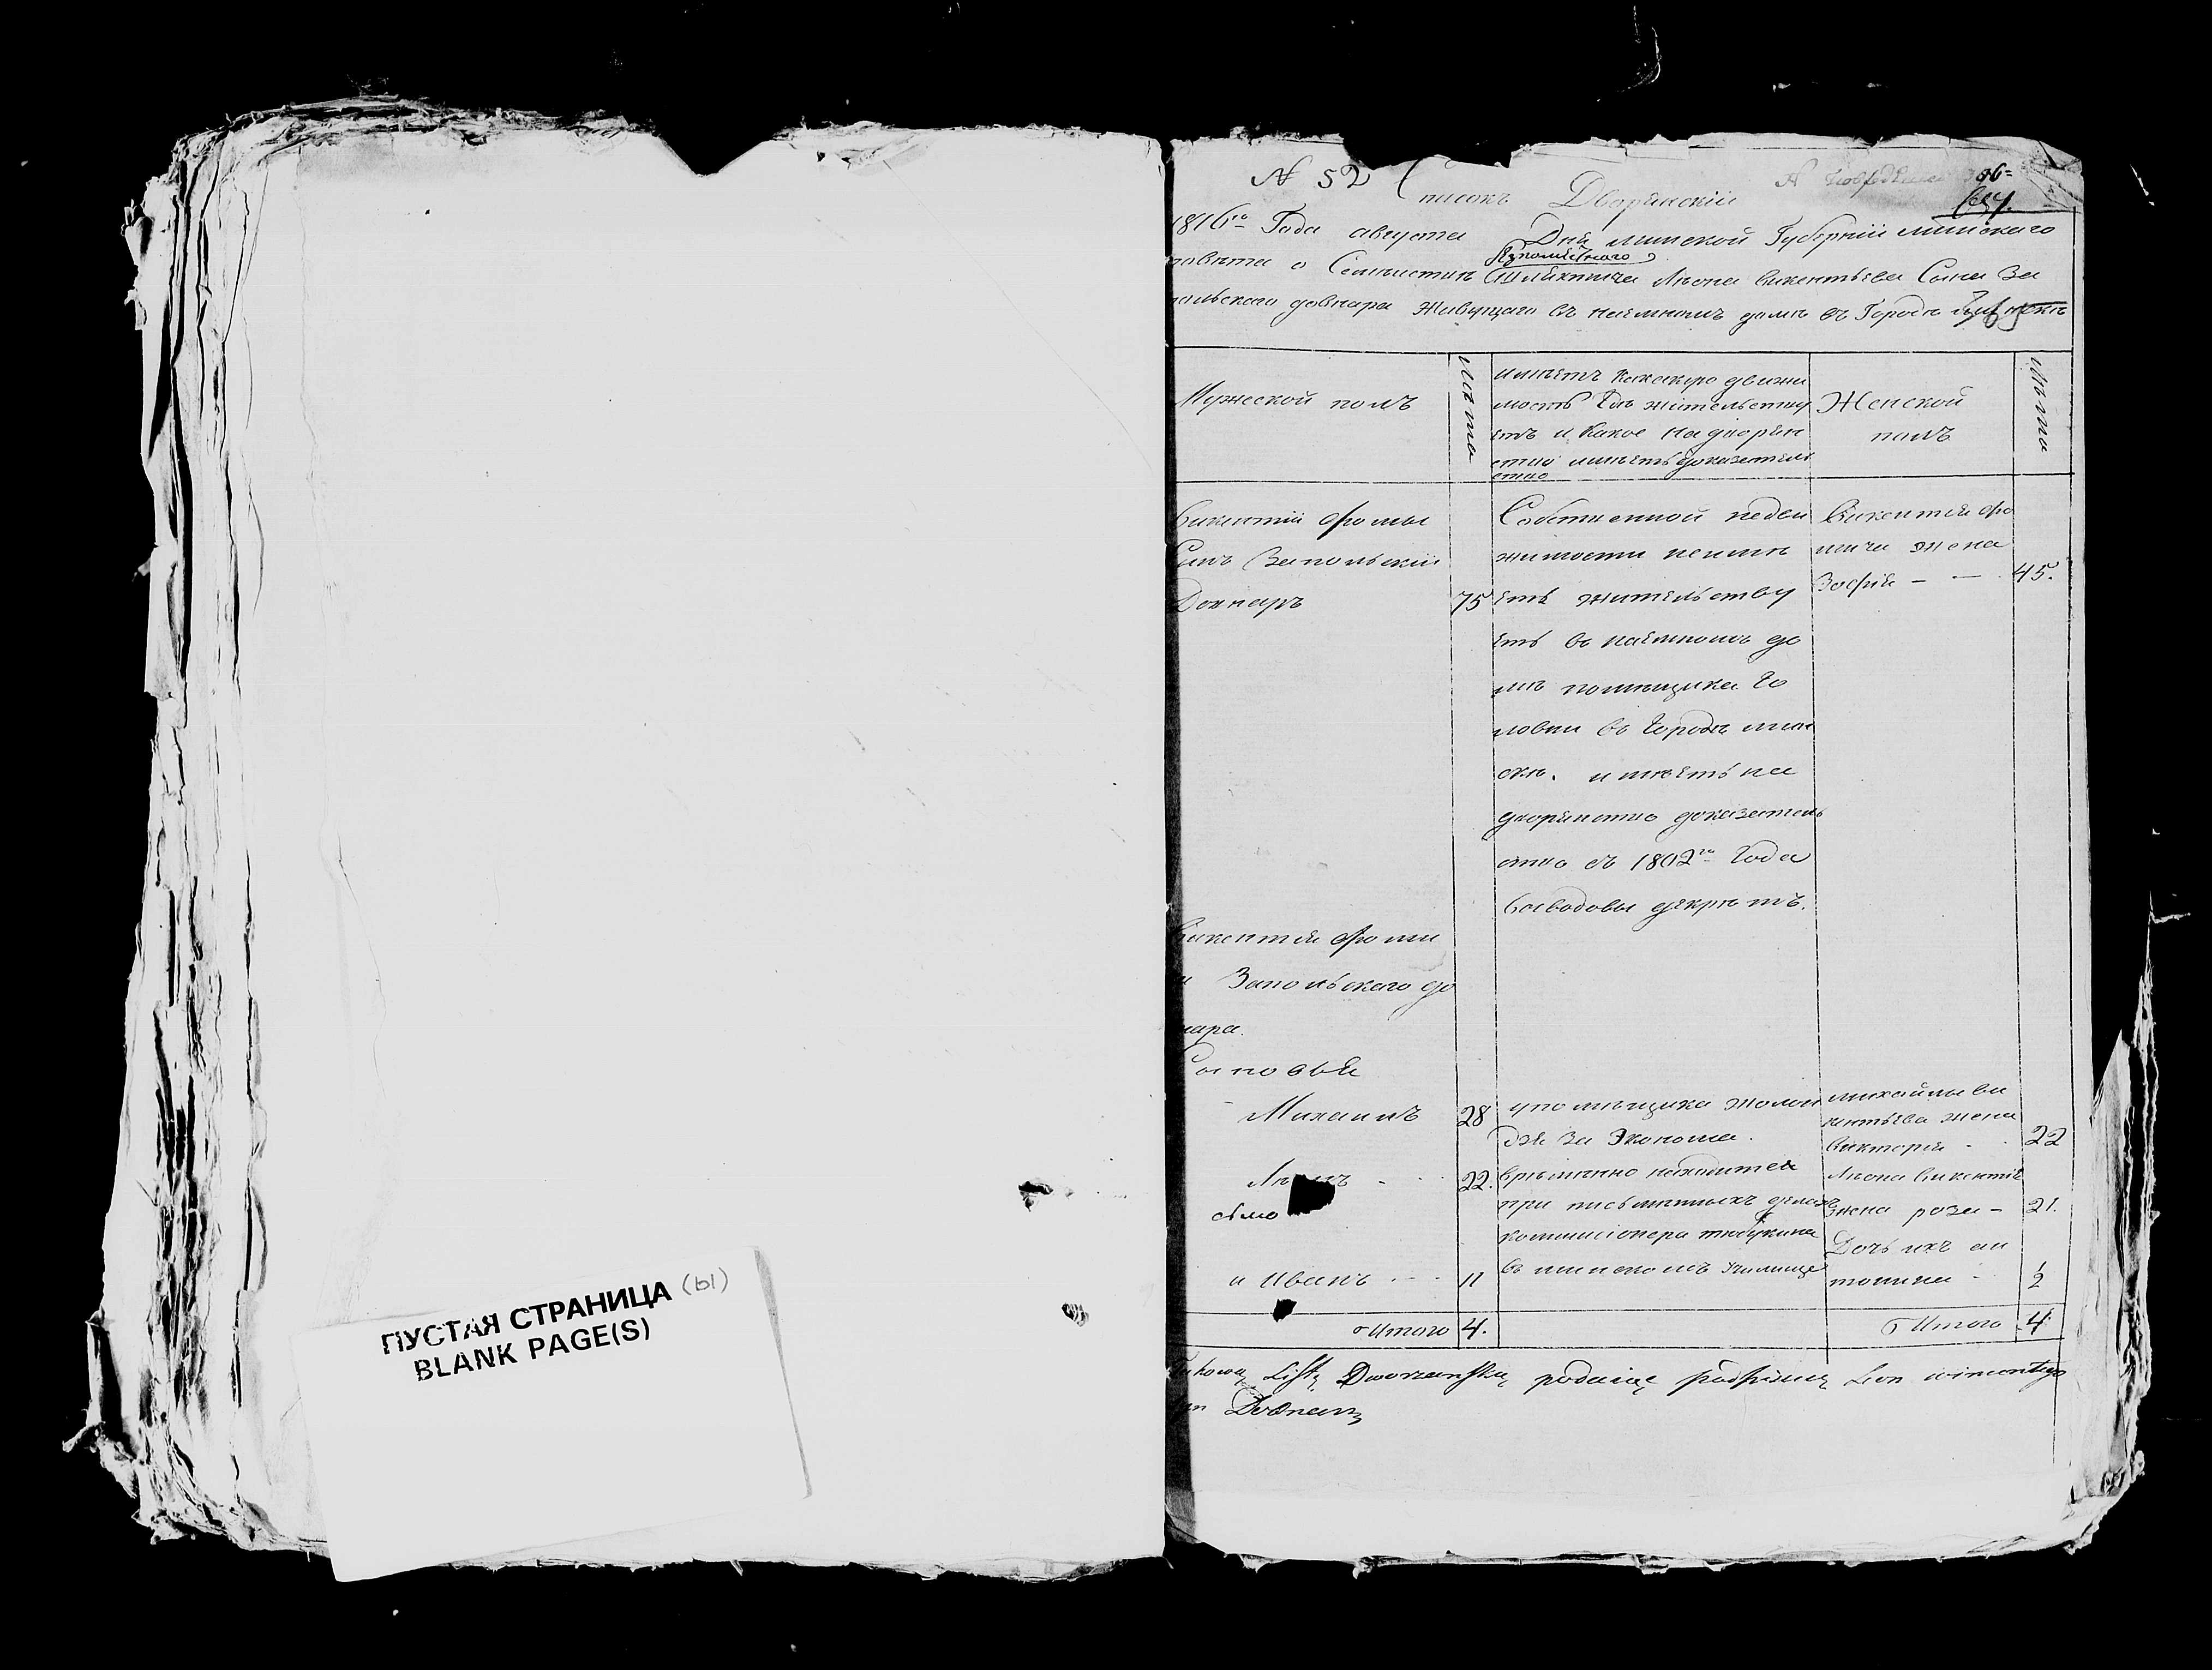 ПУСТАЯ СТРАНИЦА (ы)
BLANK PAGE(S)
N 52 Списокъ Дворянскiй
1816го Года августа Дня минской Губернiи минского
повѣта о Семѣистивѣ Шляхтича Лѣона викентьева Сына За
польского довнара Живущаго въ наемномъ домѣ въ Городѣ
Мужеской полъ
Лѣта
имѣетъ какокую движи
мость Гдѣ жительству
етъ и какое на дворян
ство имѣетъ доказатель
ство
Женской
полъ
Лѣта
Викентiй Фомы
Сынъ Запольскiй
Довнаръ 75
Собственной недви
жимости неимѣ
етъ жительству
етъ въ наемномъ до
мѣ помѣщика Го
ловни въ Городѣ мин
скѣ. имѣетъ на
дворянство доказатель
ство съ 1802го Года
выводовы декрѣтъ.
Викентiя Фо
мича жена
Зофiя - - 45.
Викентiя Фоми
Запольского до
нара.
Сыновья
Михаилъ 28
упомѣщика
за Эконома.
михайлы ви
кентьева жена
викторiя - 22
22.
врѣменно находится
при письмѣнныхъ дѣлахъ
коммисiонера
Лѣона викентiя
жена роза - 21.
и Иванъ - - - 11
въ минскомъ училище
Дочь ихъ ан
тонина - 1/2
Итого 4.
Итого 4
Listę Dworzanską podaiąc podpisuię Leon wincentego
Dovnar